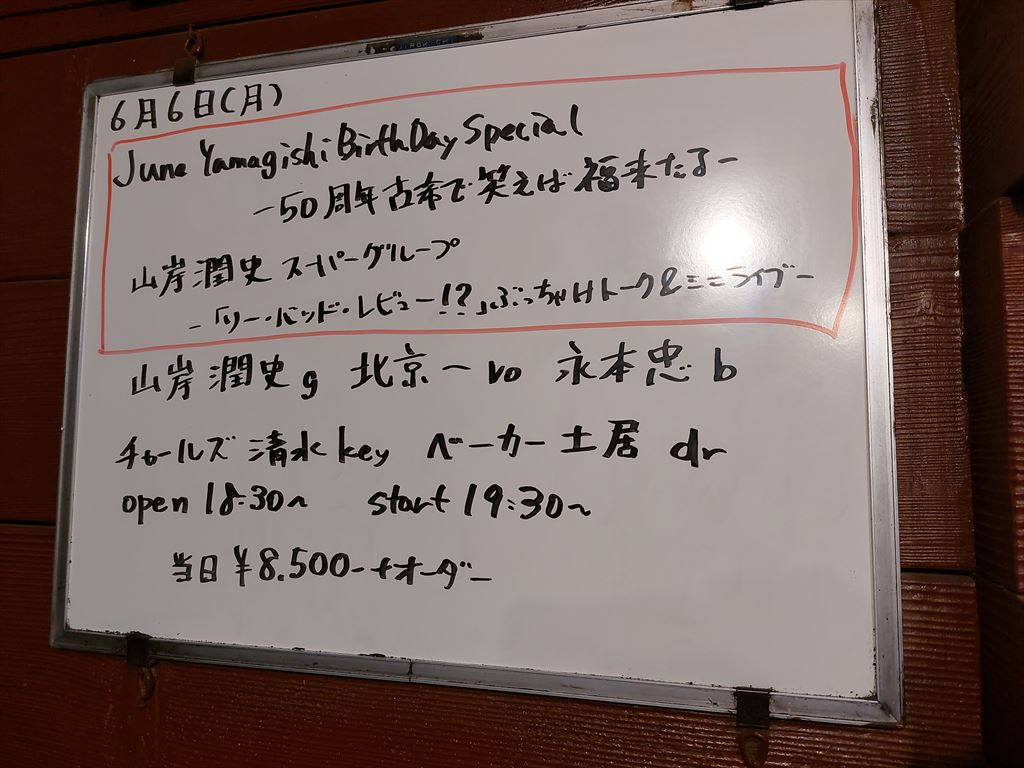 6月6日(月)
June Yamagishi BirthDay Special
-50周年古希で笑えば福来たる-
山岸潤史 スーパーグループ
-「ソー・バッド・レビュー!?」ぶっちゃけトーク&ミニライブ-
山岸潤史 g 北京一 vo 永本忠 b
チャールズ 清水 key ベーカー土居 dr
open 18:30~ start 19:30~
当日 ¥8.500-+オーダー